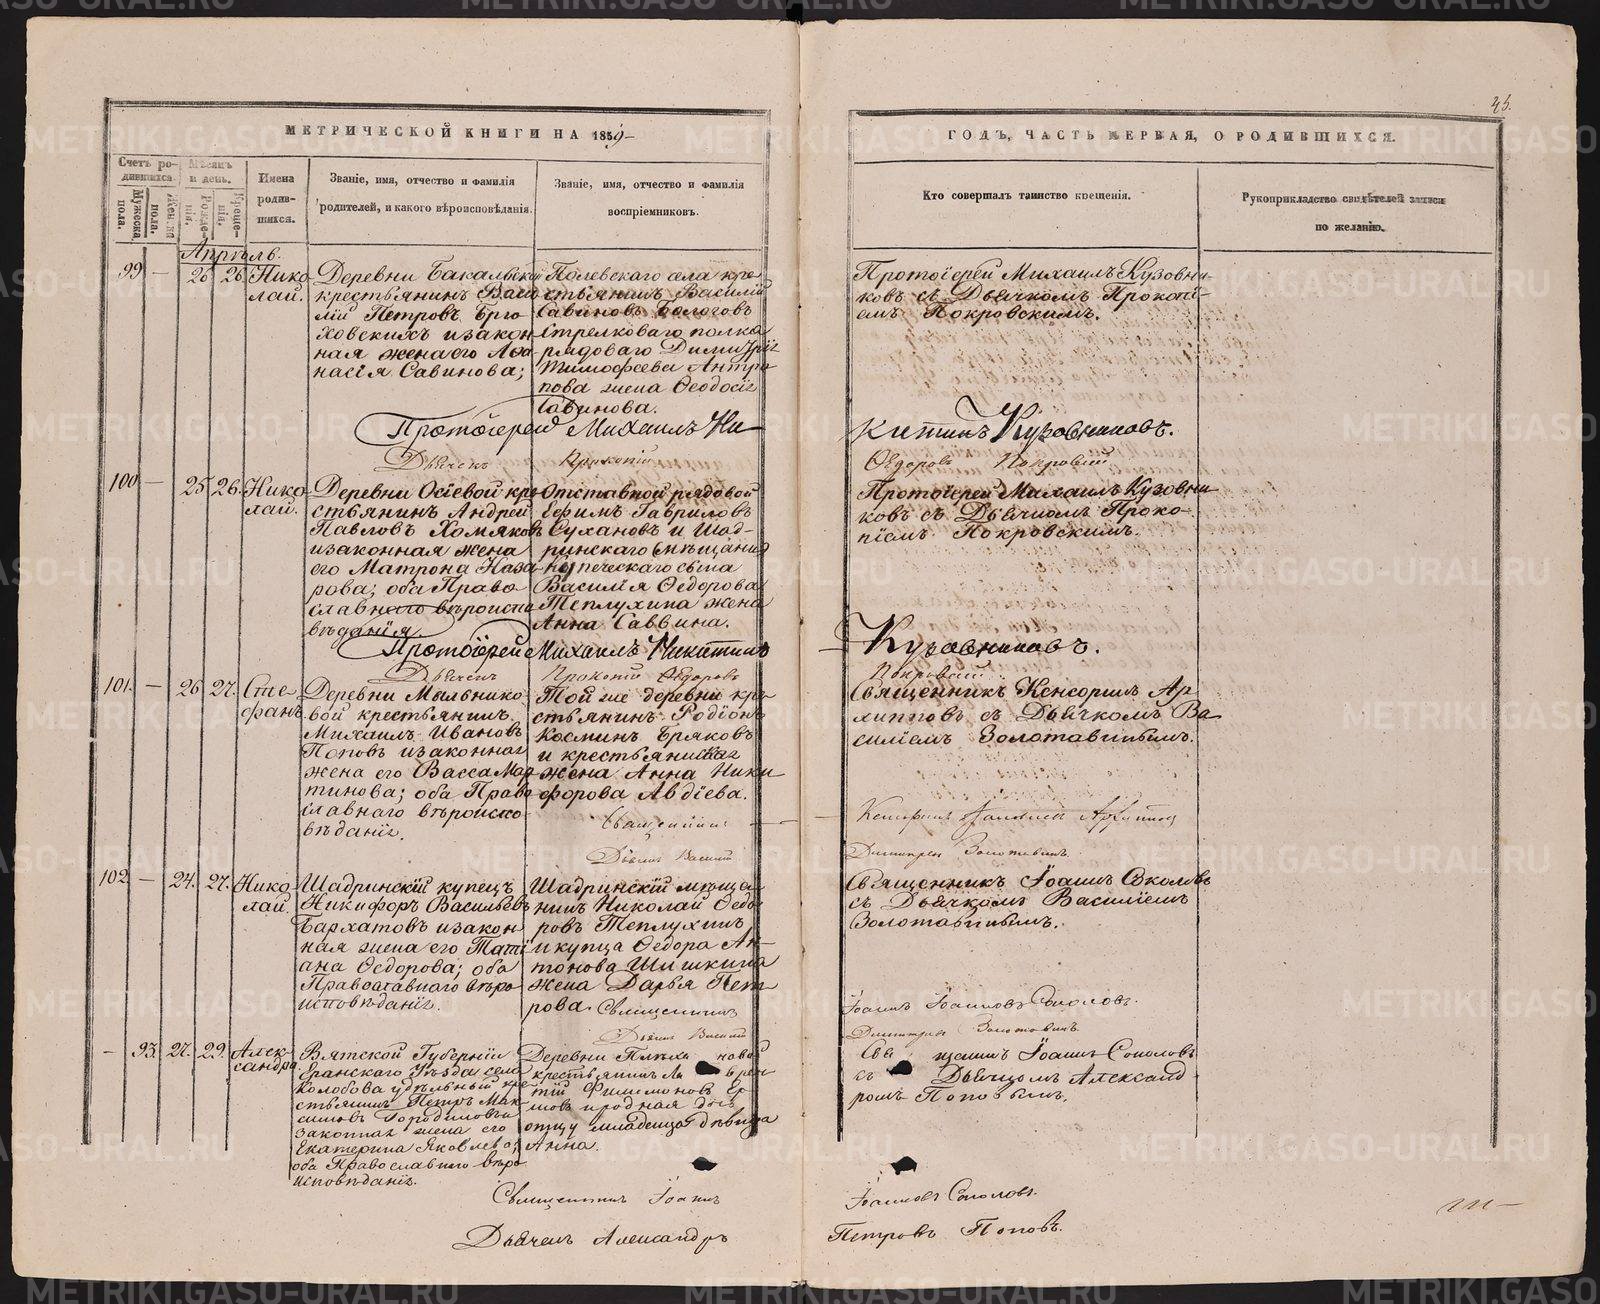 43.
МЕТРИЧЕСКОЙ КНИГИ НА 1859
ГОДЪ, ЧАСТЬ ПЕРВАЯ, О РОДИВШИХСЯ.
Счетъ ро-
дившихся.
Мужеска
пола.
Женска
пола.
Мѣсяцъ
и день.
Рожде-
нія.
Креще-
нія.
Имена
родив-
шихся.
Званіе, имя, отчество и фамилія
родителей, и какого вѣроисповѣданія.
Званіе, имя, отчество и фамилія
воспріемниковъ.
Кто совершалъ таинство крещенія.
Рукоприкладство свидѣтелей записи
по желанію.
Апрѣль.
99 — 26 26 Нико
лай.
Деревни Бакальской
крестьянинъ Васи
лій Петровъ Брю
ховскихъ и закон
ная жена его Афа
насія Савинова;
Полевскаго села кре
стьянинъ Василій
Савиновъ Бологовъ
Стрелковаго полка
рядоваго Димитрія
Тимофеева Антро
пова жена Ѳеодосія
Савинова.
Протоіерей Михаилъ Кузовни-
ковъ съ Дьячкомъ Прокопі-
емъ Покровскимъ.
Протоіерей Михаилъ Ни
китинъ Кузовниковъ.
Дьячекъ Прокопій
Ѳедоровъ Покровскій
100 — 25 26 Нико
лай.
Деревни Осіевой кре
стьянинъ Андрей
Павловъ Хомяковъ
и законная жена
его Матрона Наза
рова; оба Право
славнаго вѣроиспо
вѣданія.
Отставной рядовой
Ефимъ Гавриловъ
Сухановъ и Шад-
ринскаго мѣщанина
купеческаго сына
Василія Ѳедорова
Теплухина жена
Анна Саввина.
Протоіерей Михаилъ Кузовни
ковъ съ Дьячкомъ Проко-
піемъ Покровскимъ.
Протоіерей Михаилъ Никитинъ
Кузовниковъ.
Дьячекъ Прокопій Ѳедоровъ
Покровскій
101. — 26 27. Сте
фанъ.
Деревни Мыльнико
вой крестьянинъ
Михаилъ Ивановъ
Поповъ и законная
жена его Васса Мар
тинова; оба Право
славнаго вѣроиспо
вѣданія.
Той же деревни кре
стьянинъ Родіонъ
Косминъ Бряковъ
и крестьянская
жена Анна Ники
форова Авдіева.
Священникъ Кенсоринъ Ар
хипповъ съ Дьячкомъ Ва
силіемъ Золотавинымъ.
Священникъ
Дьячекъ Василій
Димитріевъ Золотавинъ
102 — 24. 27. Нико
лай.
Шадринскій купецъ
Никифоръ Васильевъ
Бархатовъ и закон
ная жена его Татi
ана Ѳедорова; оба
Православнаго вѣро
исповѣданія.
Шадринскій мѣща
нинъ Николай Ѳедо
ровъ Теплухинъ
и купца Ѳедора Ан
тонова Шишкина
жена Дарья Пет
рова.
Священникъ Іоаннъ Соколовъ
съ Дьячкомъ Василіемъ
Золотавинымъ.
Священникъ
Іоаннъ Іоанновъ Соколовъ.
Дьячекъ Василій
Димитріевъ Золотавинъ
— 93. 27. 29. Алек
сандра
Вятской Губерніи
Яранскаго Уѣзда села
Колобова удѣльный кре
стьянинъ Петръ Мак
симовъ и
законная жена его
Екатерина Яковлева;
оба Православнаго вѣро
исповѣданія.
Деревни новой
крестьянинъ
тій Филимоновъ Ер
шовъ и родная
отцу младенца дѣвица
Анна.
Священникъ Іоаннъ Соколовъ
съ Дьячкомъ Александ
ромъ Поповымъ.
Священникъ Іоаннъ
Іоанновъ Соколовъ.
Дьячекъ Александръ
Петровъ Поповъ.
METRIKI.GASO-URAL.RU